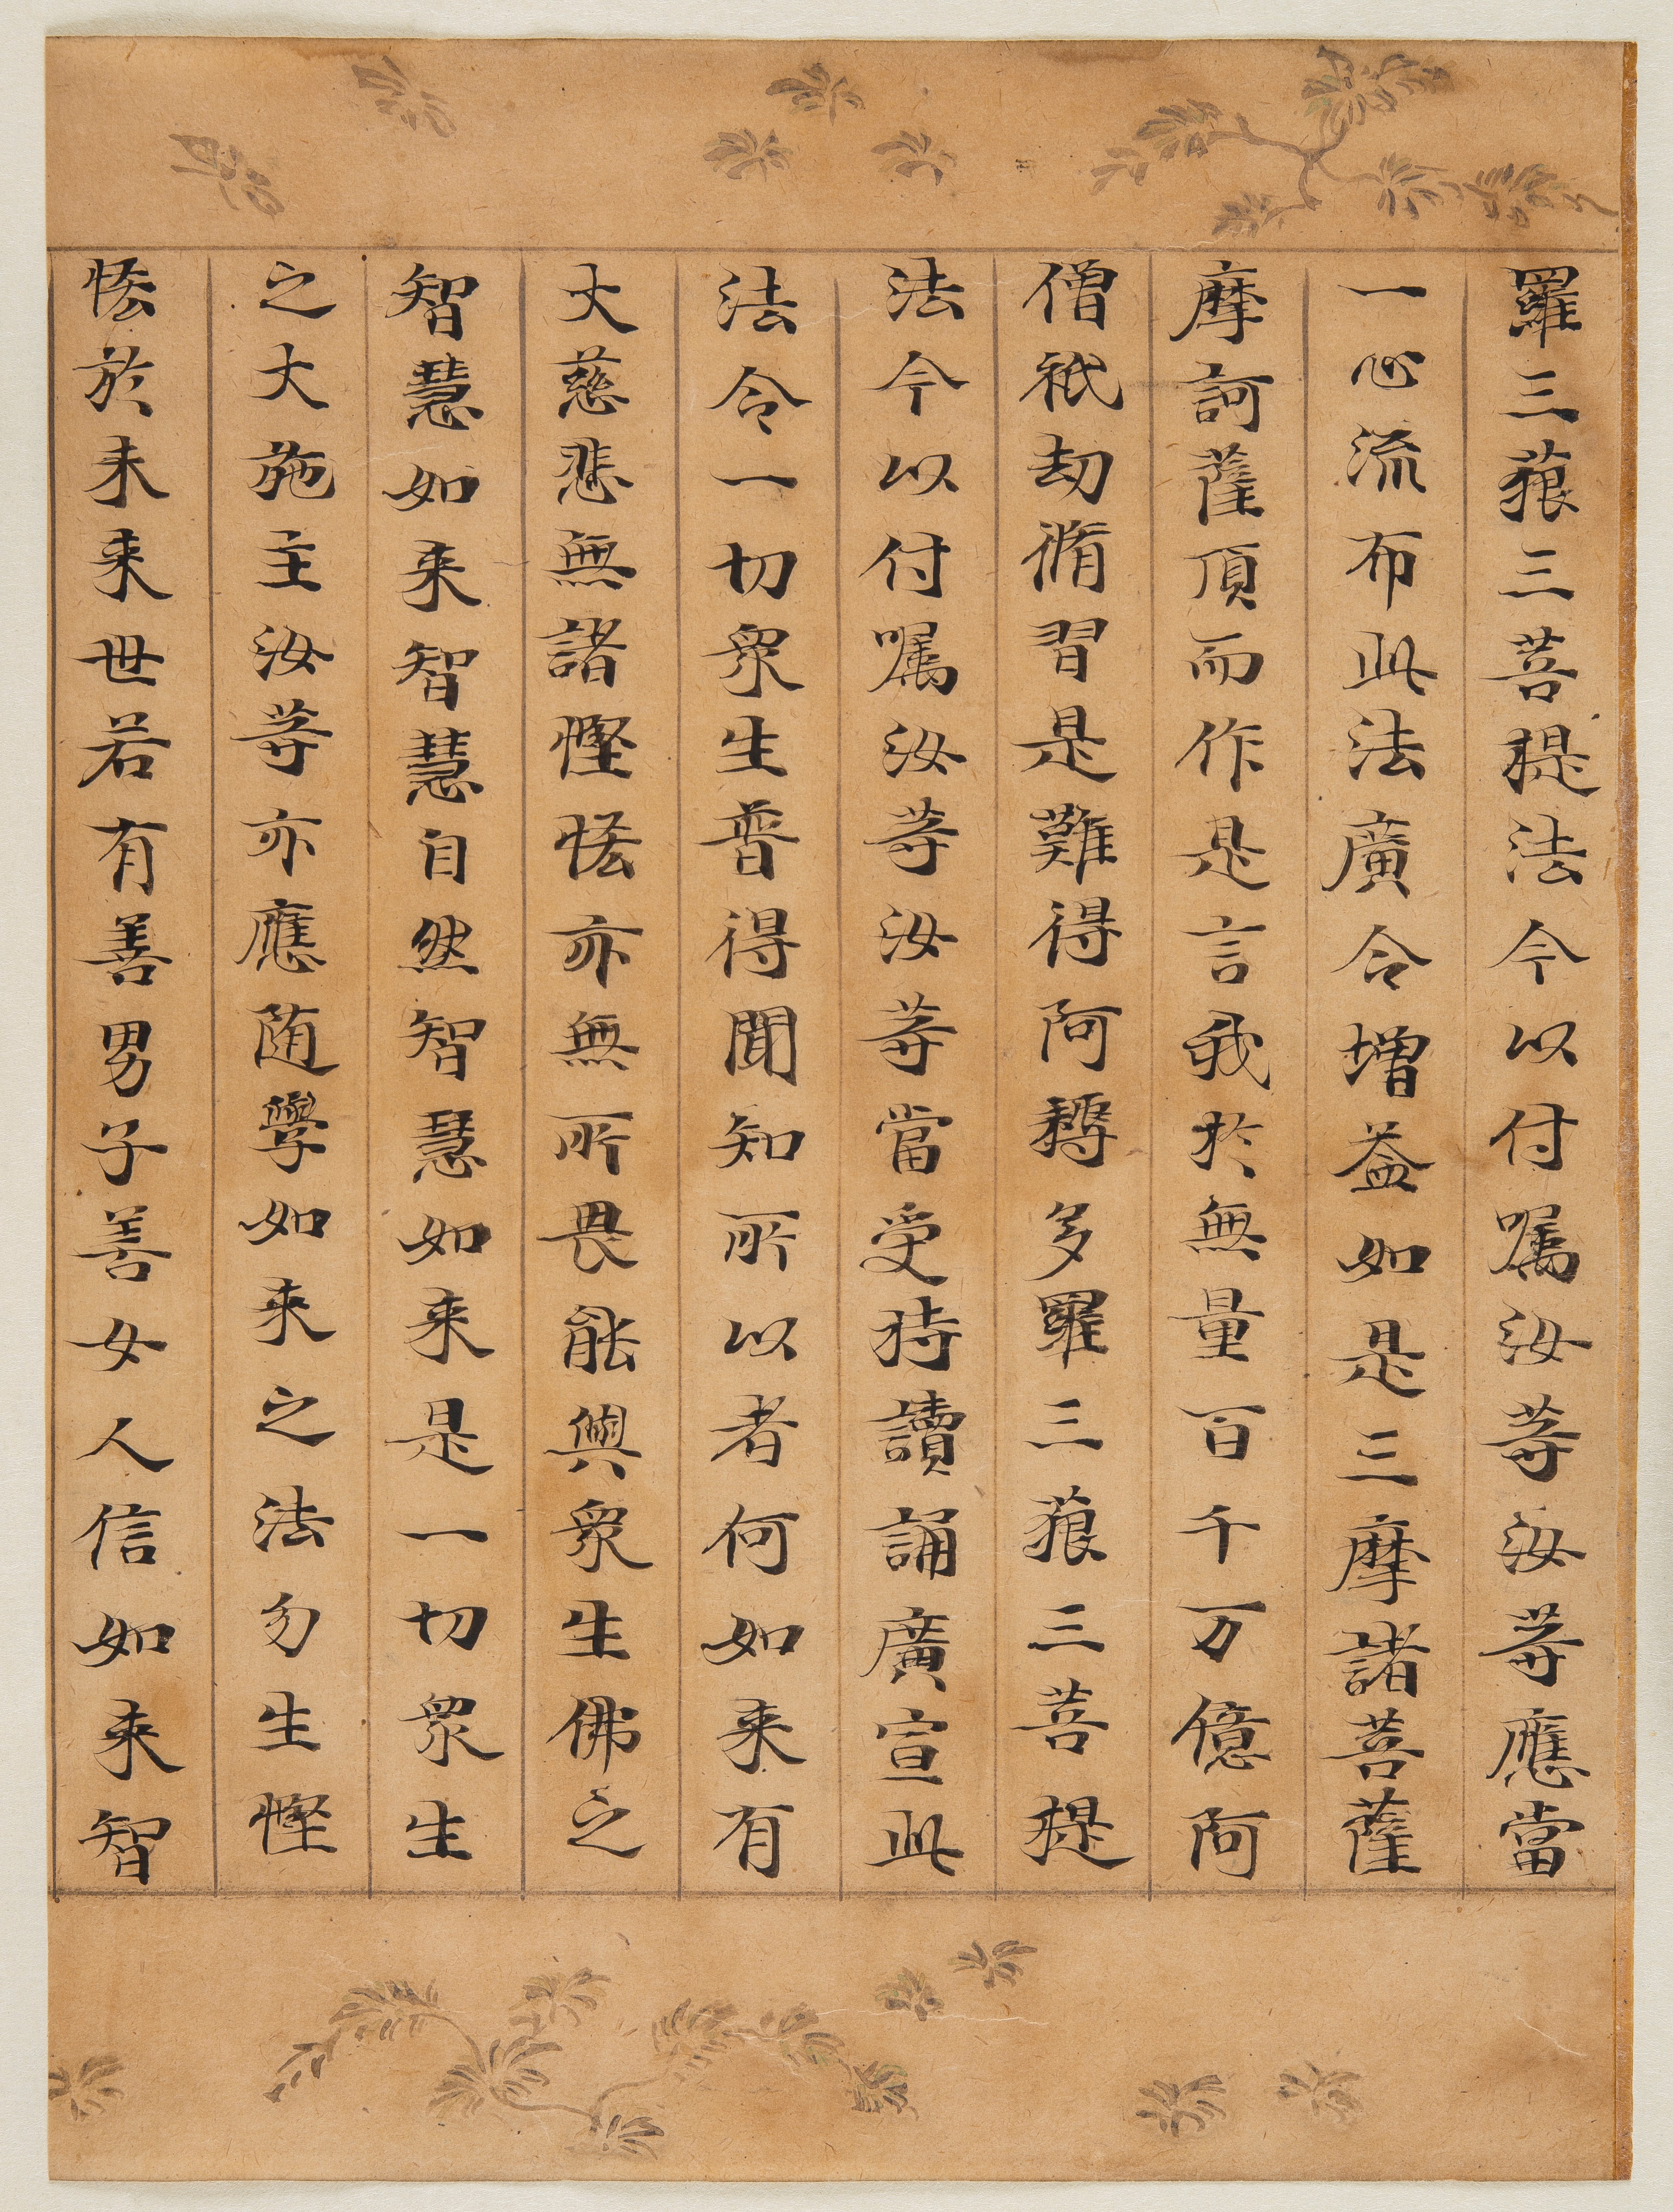 羅三藐三菩提法今以付嘱汝等汝等應當
一心流布此法廣令增益如是三摩諸菩薩
摩訶薩頂而作是言我於無量百千万億阿
僧祇劫脩習是難得阿耨多羅三藐三菩提
法今以付嘱汝等汝等當受持讀誦廣宣此
法令一切衆生普得聞知所以者何如来有
大慈悲無諸慳悋亦無所畏能與衆生佛之
智慧如来智慧自然智慧如来是一切衆生
之大施主汝等亦應随學如来之法勿生慳
悋於未来世若有善男子善女人信如来智